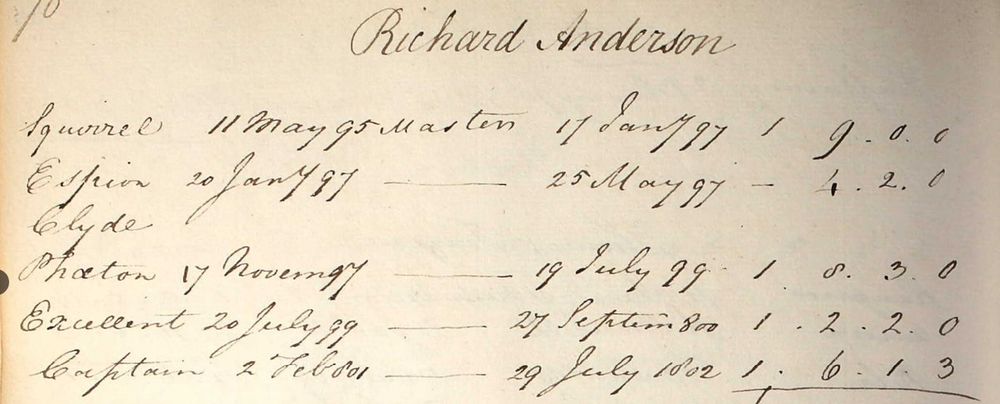 Richard Anderson
Squirrel 11 May 95 Master 17 Jany 97 1 9 . 0 . 0
Espion 20 Jany 97 — 25 May 97 — 4 . 2 . 0
Clyde
Phæton 17 Novem 97 — 19 July 99 1 8 . 3 . 0
Excellent 20 July 99 — 27 Septem 800 1 . 2 . 2 . 0
Captain 2 Feb 801 — 29 July 1802 1 . 6 . 1 . 3